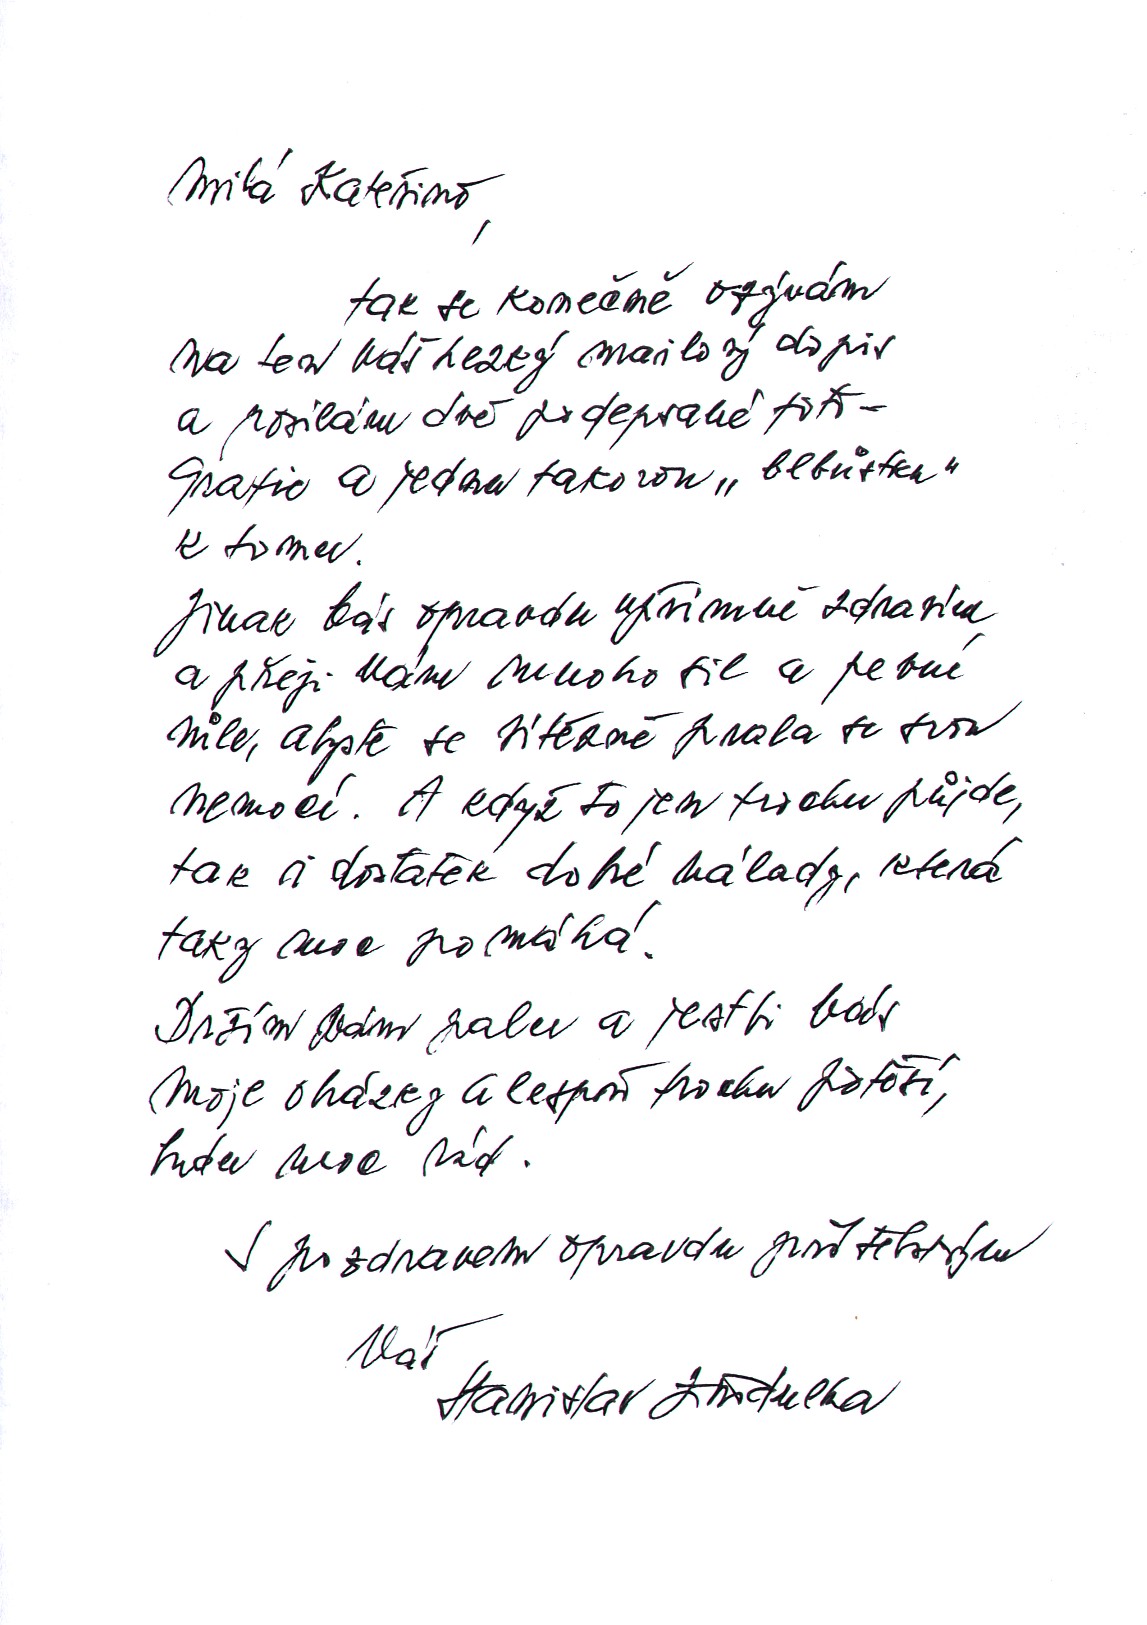 Milá Kateřino,
tak se konečně ozývám
na ten Váš hezký mailový dopis
a posílám dvě podepsané foto-
grafie a jednu takovou „blbůstku"
k tomu.
Jinak Vás opravdu upřímně zdravím
a přeji Vám mnoho sil a pevné
vůle, abyste se vítězně prala se svou
nemocí. A když to jen trochu půjde,
tak i dostatek dobré nálady, která
taky moc pomáhá.
Držím Vám palce a jestli Vás
moje obrázky alespoň trochu potěší,
budu moc rád.
S pozdravem opravdu přátelským
Váš
Stanislav Zindulka